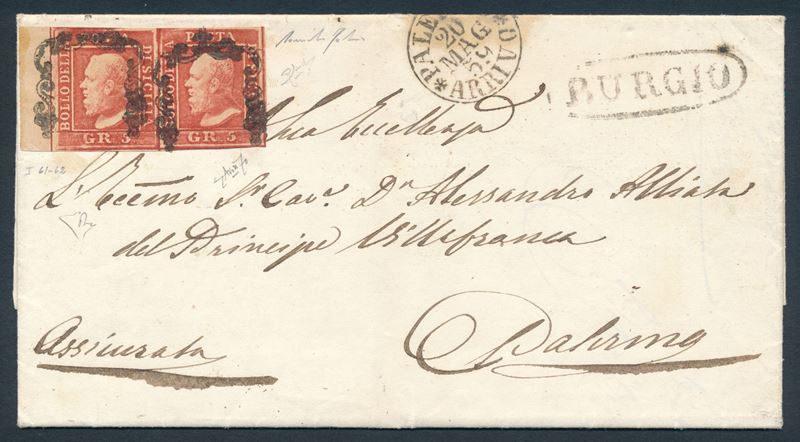 BOLLO DELLA POSTA DI SICILIA
GR. 5
BOLLO DELLA POSTA
GR. 5
PALERMO
20
MAG
59
*ARRIVO*
BURGIO
I 61-62
Sua Eccellenza
L'Eccmo Sr. Cavr. Dn Alessandro Alliata
del Principe Villafranca
Assicurata
Palermo